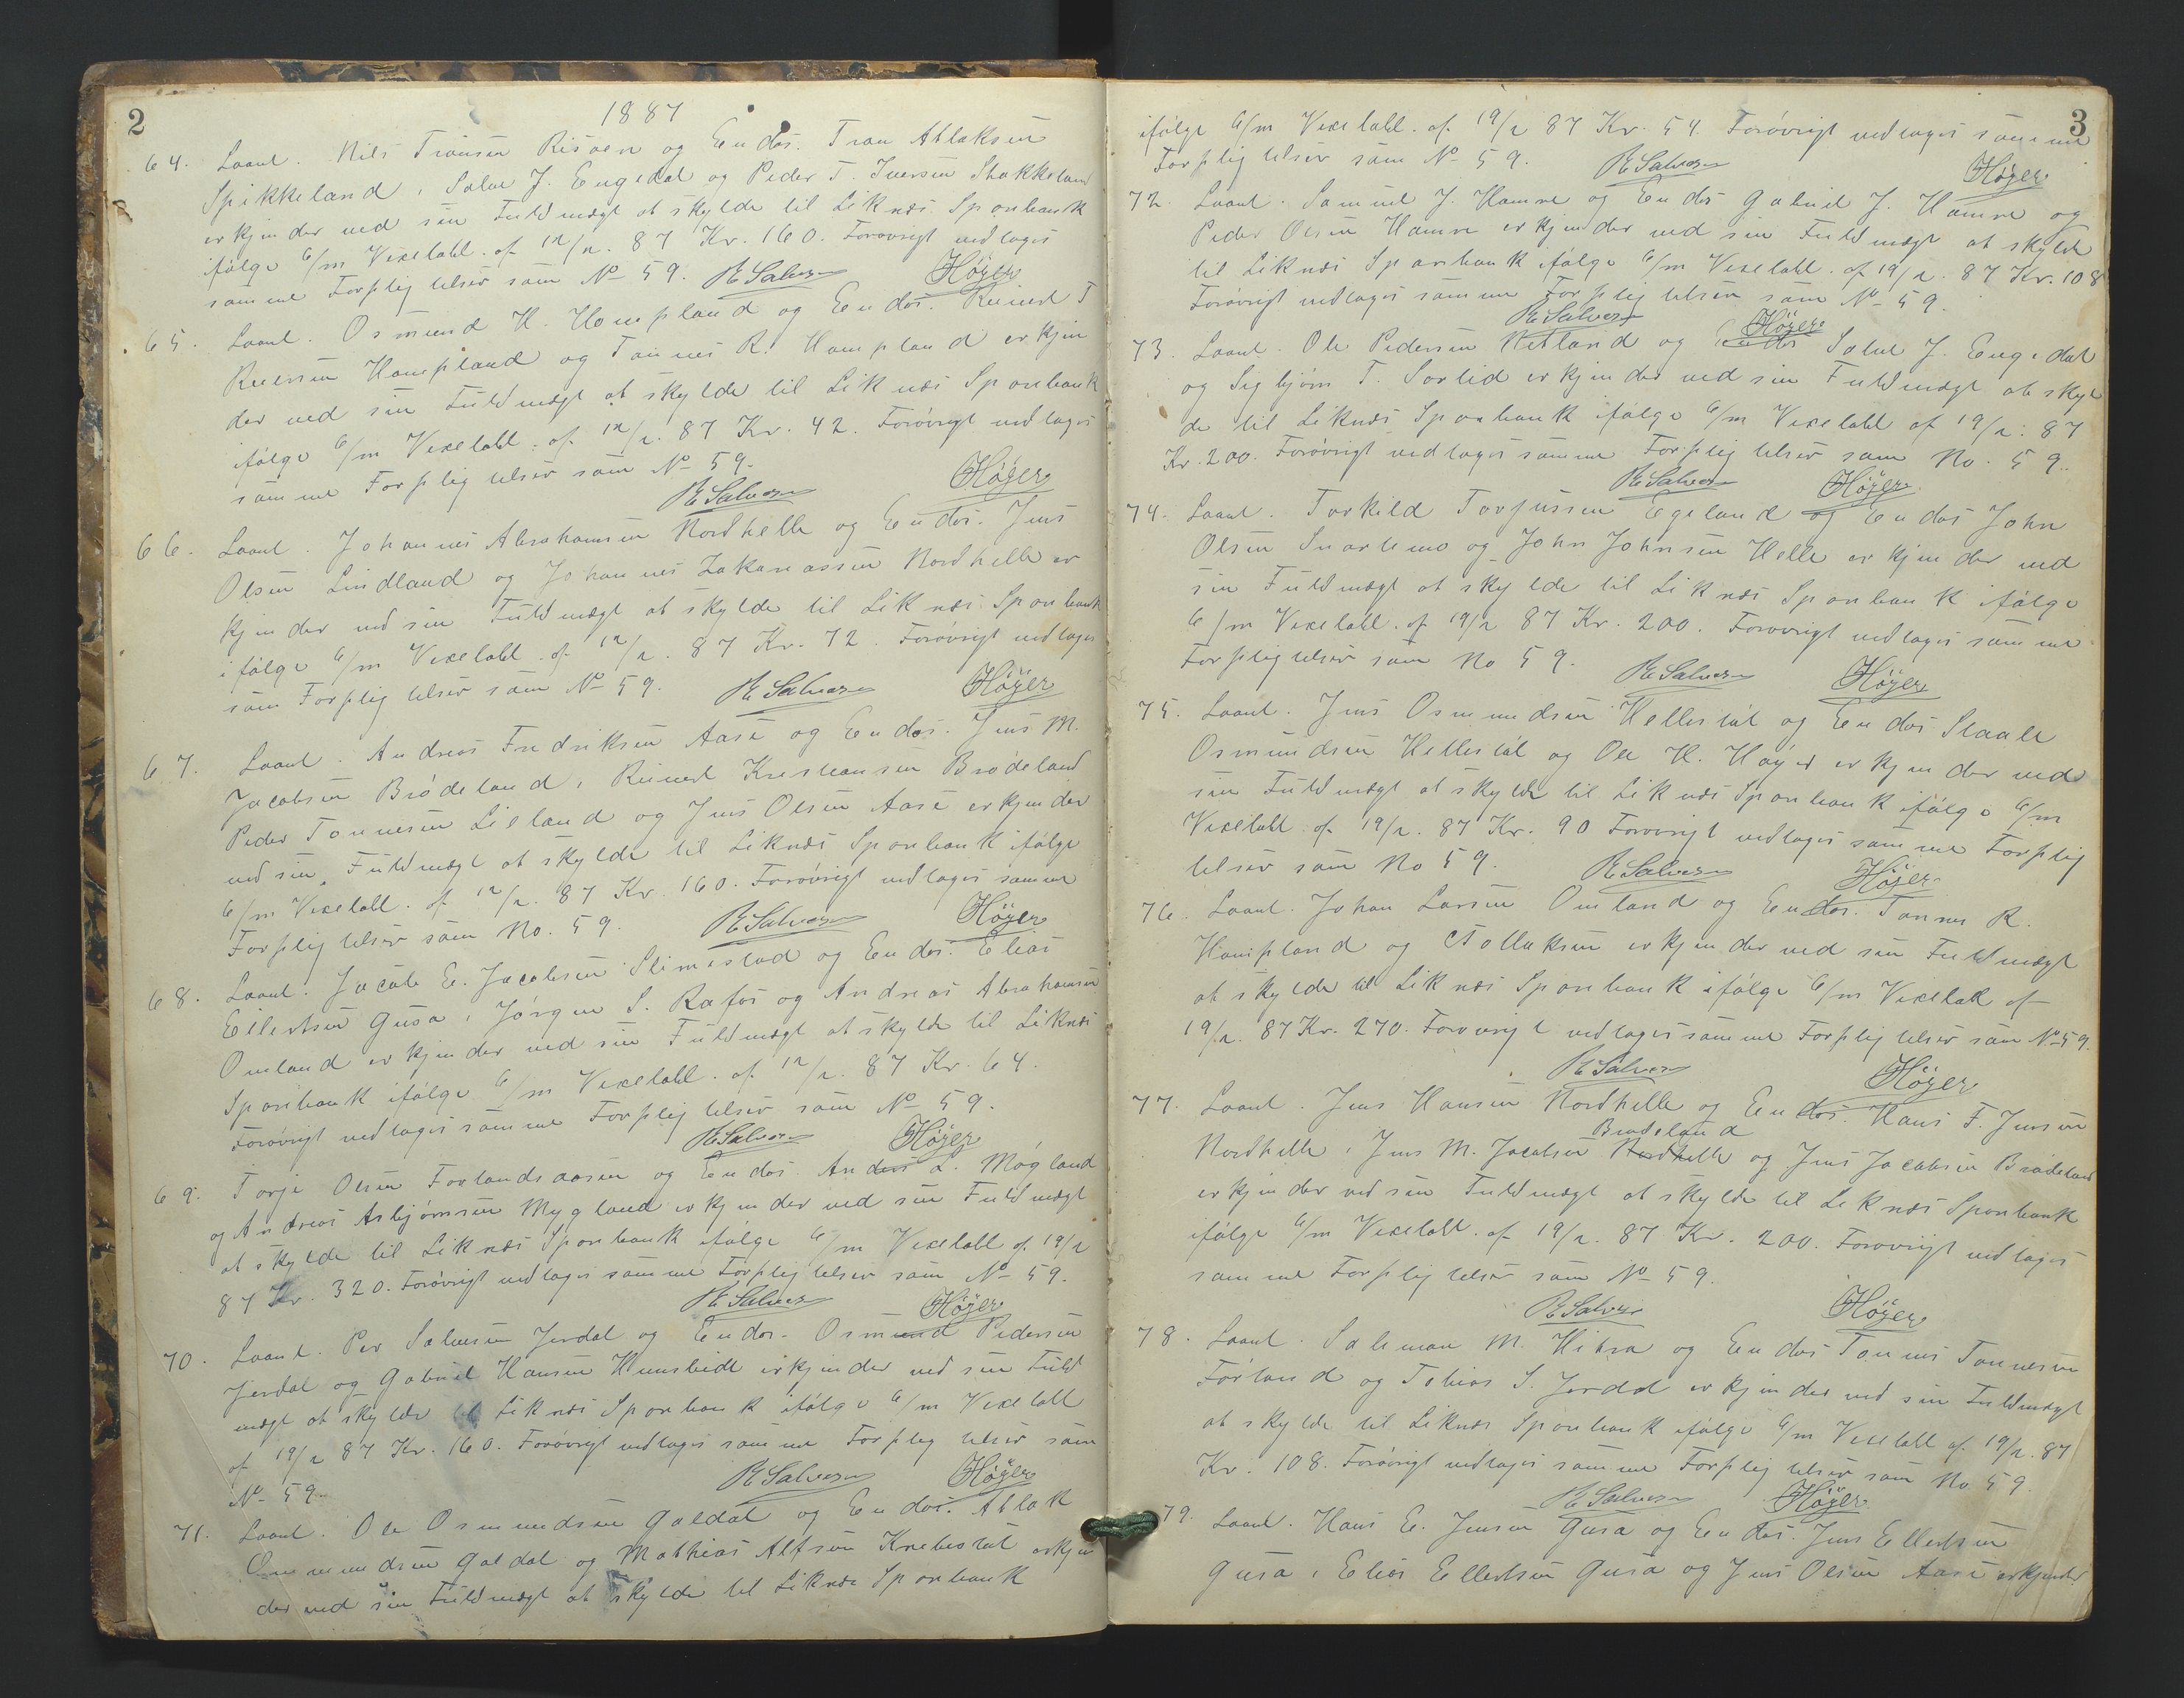 2
1887
64. Laant. Nils Tronsen Risøen og Endos. Tron Atlaksen
Spikkeland, Salve J. Engedal og Peder T. Iversen Stakkeland
erkjender ved sin Fuldmægt at skylde til Liknæs Sparebank
ifølge 6/m Vexelobl. af 12/2. 87 Kr. 160. Forøvrigt vedtages
samme Forpligtelser som No 59. RSalvesen Höyer
65. Laant. Osmund H. Hompland og Endos. Reinert T
Reiersen Hompland og Tønnes R. Hompland erkjen
der ved sin Fuldmægt at skylde til Liknæs Sparebank
ifølge 6/m Vexelobl. af 12/2. 87 Kr. 42. Forøvrigt vedtages
samme Forpligtelser som No 59.
RSalvesen Höyer
66. Laant. Johannes Abrahamsen Nordhelle og Endos. Jens
Olsen Lindland og Johannes Zakariassen Nordhelle er
kjender ved sin Fuldmægt at skylde til Liknæs Sparebank
ifølge 6/m Vexelobl. af 12/2. 87 Kr. 72. Forøvrigt vedtages
som Forpligtelser som No 59. RSalvesen Höyer
67. Laant. Andreas Fredriksen Aase og Endos. Jens M.
Jacobsen Brødeland, Reinert Kristiansen Brødeland
Peder Tønnesen Lieland og Jens Olsen Aase erkjender
ved sin Fuldmægt at skylde til Liknæs Sparebank ifølge
6/m Vexelobl. af 12/2. 87 Kr. 160. Forøvrigt vedtages samme
Forpligtelser som No. 59. RSalvesen Höyer
68. Laant. Jacob E. Jacobsen Slimestad og Endos. Elias
Eilertsen Gusa, Jørgen S. Rafos og Andreas Abrahamsen
Omland erkjender ved sin Fuldmægt at skylde til Liknæs
Sparebank ifølge 6/m Vexelobl. af 12/2. 87 Kr. 64.
Forøvrigt vedtages samme Forpligtelser som No 59.
RSalvesen Höyer
69. Torje Olsen Forlandsaasen og Endos. Andreas L. Møgland
og Andreas Asbjørnsen Mygland erkjender ved sin Fuldmægt
at skylde til Liknæs Sparebank ifølge 6/m Vexelobl. af 19/2
87 Kr. 320. Forøvrigt vedtages samme Forpligtelser som No 59.
RSalvesen Höyer
70. Laant. Per Salvesen Jerdal og Endos. Osmund Pedersen
Jerdal og Gabriel Hansen Kumleheidt erkjender ved sin Fuld
mægt at skylde til Liknæs Sparebank ifølge 6/m Vexelobl
af 19/2 87 Kr. 160. Forøvrigt vedtages samme Forpligtelser som
No 59. RSalvesen Höyer
71. Laant. Ole Osmundsen Galdal og Endos. Atlak
Ommundsen Galdal og Mathias Alfsen Knebestøl erkjen
der ved sin Fuldmægt at skylde til Liknæs Sparebank
3
ifølge 6/m Vexelobl. af 19/2 87 Kr. 54. Forøvrigt vedtages samme
Forpligtelser som No 59. RSalvesen Höyer
72. Laant. Samuel J. Hamre og Endos Gabriel J. Hamre og
Peder Olsen Hamre erkjender ved sin Fuldmægt at skylde
til Liknæs Sparebank ifølge 6/m Vexelobl. af 19/2. 87 Kr. 108
Forøvrigt vedtages samme Forpligtelser som No 59.
RSalvesen Höyer
73. Laant. Ole Pedersen Netland og Endos Salve J. Engedal
og Sigbjørn T. Sorlid erkjender ved sin Fuldmægt at skyl
de til Liknæs Sparebank ifølge 6/m Vexelobl af 19/2. 87
Kr. 200. Forøvrigt vedtages samme Forpligtelser som No. 59.
RSalvesen Höyer
74. Laant. Torkild Torjussen Egeland og Endos John
Olsen Snartemo og John Johnsen Helle erkjender ved
sin Fuldmægt at skylde til Liknæs Sparebank ifølge
6/m Vexelobl. af 19/2 87 Kr. 200. Forøvrigt vedtages samme
Forpligtelser som No 59. RSalvesen Höyer
75. Laant. Jens Osmundsen Hellestøl og Endos Staale
Osmundsen Hellestøl og Ole H. Høyer erkjender ved
sin Fuldmægt at skylde til Liknæs Sparebank ifølge 6/m
Vexelobl. af 19/2. 87 Kr. 90 Forøvrigt vedtages samme Forplig
telser som No 59. RSalvesen Höyer
76. Laant. Johan Larsen Omland og Endos. Tønnes R.
Hompland og Tollaksen erkjender ved sin Fuldmægt
at skylde til Liknæs Sparebank ifølge 6/m Vexelobl af
19/2. 87 Kr. 270. Forøvrigt vedtages samme Forpligtelser som No 59.
RSalvesen Höyer
77. Laant. Jens Hansen Nordhelle og Endos. Hans F. Jensen
Brødeland
Nordhelle, Jens M. Jacobsen Nordhelle og Jens Jacobsen Brødeland
erkjender ved sin Fuldmægt at skylde til Liknæs Sparebank
ifølge 6/m Vexelobl. af 19/2. 87 Kr. 200. Forøvrigt vedtages
samme Forpligtelser som No 59.
RSalvesen Höyer
78. Laant. Saleman M. Hidra og Endos Tønnes Tønnesen
Førland og Tobias S. Jerdal erkjender ved sin Fuldmægt
at skylde til Liknæs Sparebank ifølge 6/m Vexelobl af 19/2. 87
Kr. 108. Forøvrigt vedtages samme Forpligtelser som No 59.
RSalvesen Höyer
79. Laant. Hans E. Jensen Gusa og Endos. Jens Ellertsen
Gusa, Elias Ellertsen Gusa og Jens Olsen Aase erkjender